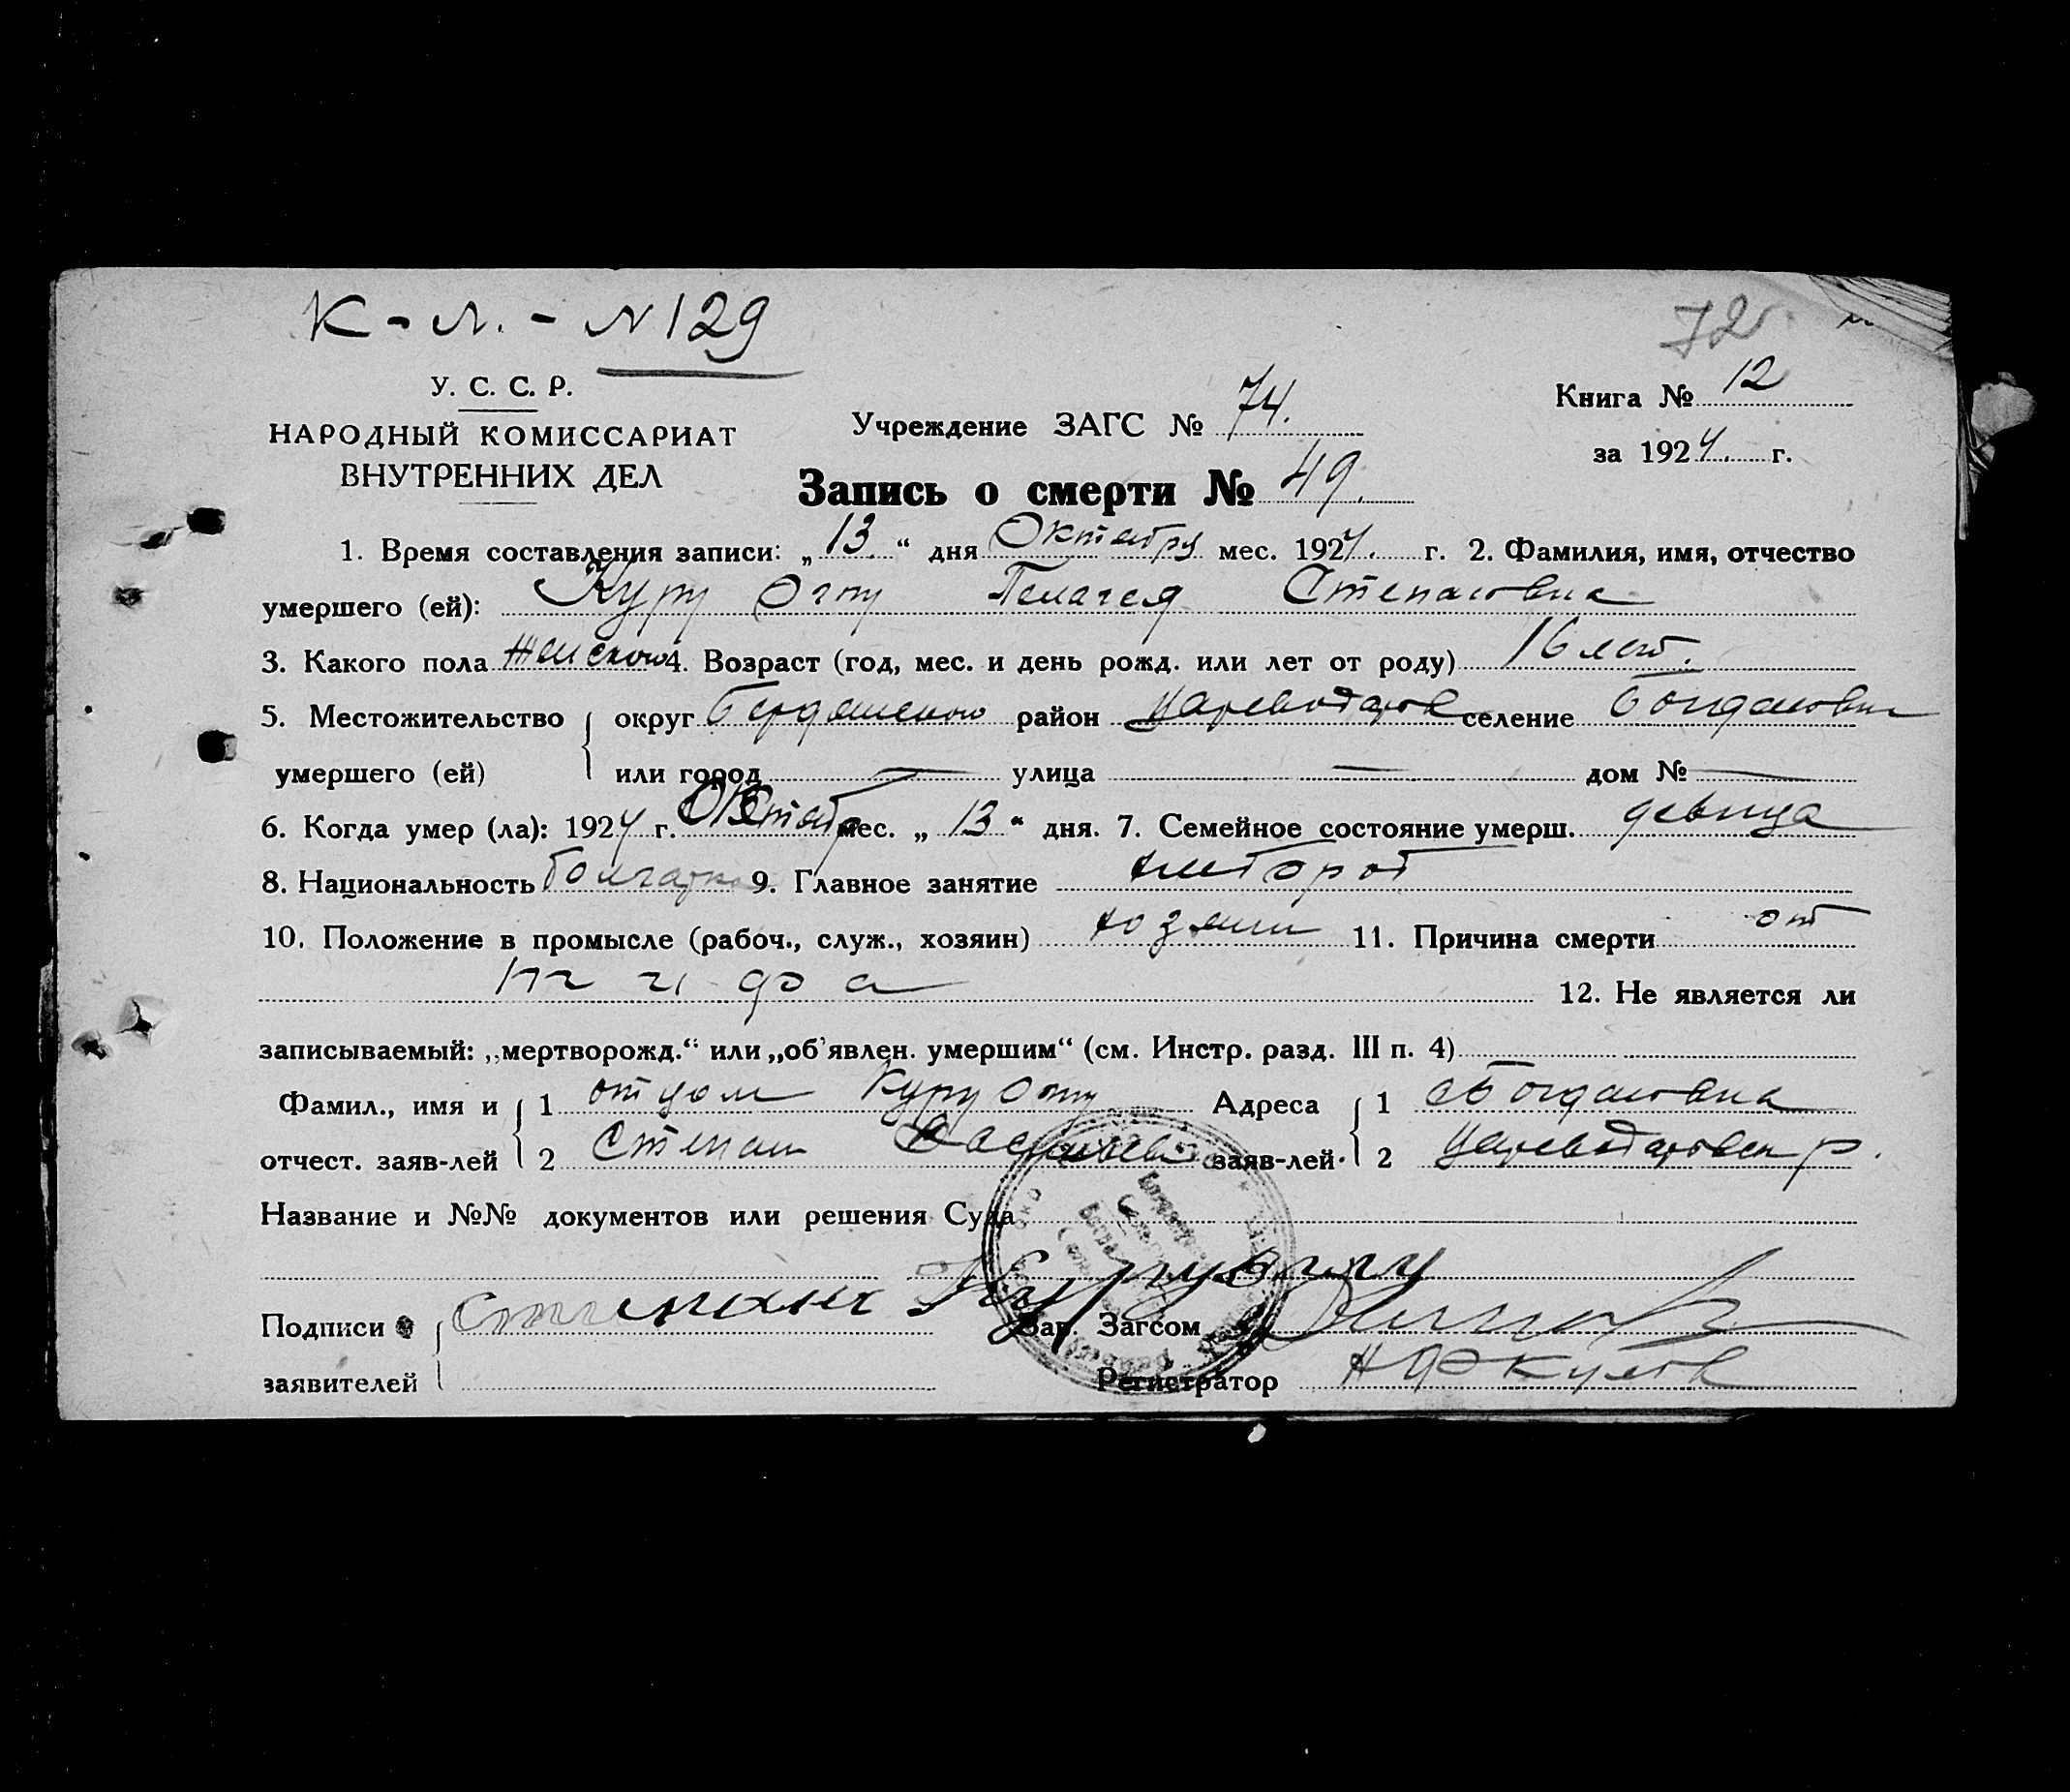 К-Л.-N129
72
У. С. С. Р.
НАРОДНЫЙ КОМИССАРИАТ
ВНУТРЕННИХ ДЕЛ
Учреждение ЗАГС № 74.
Книга № 12
за 1924. г.
Запись о смерти № 49.
1. Время составления записи: „13.“ дня Октября мес. 1924. г. 2. Фамилия, имя, отчество
умершего (ей): Куру Оглу Пелагея Степановна
3. Какого пола Женского 4. Возраст (год, мес. и день рожд. или лет от роду) 16 лет.
5. Местожительство округ район селение Богдановки
умершего (ей) или город — улица — дом № —
6. Когда умер (ла): 1924 г. Октябр мес. „13“ дня. 7. Семейное состояние умерш. девица
8. Национальность болгарка 9. Главное занятие хлебороб
10. Положение в промысле (рабоч., служ., хозяин) хозяин 11. Причина смерти от
12. Не является ли
записываемый: „мертворожд.“ или „об'явлен. умершим“ (см. Инстр. разд. III п. 4)
Фамил., имя и 1 отцом Куру Оглу Адреса 1 с Богдановка
отчест. заяв-лей 2 Степан заяв-лей 2 р.
Название и №№ документов или решения Суда
Куруоглу
Подписи Зав. Загсом
заявителей Регистратор